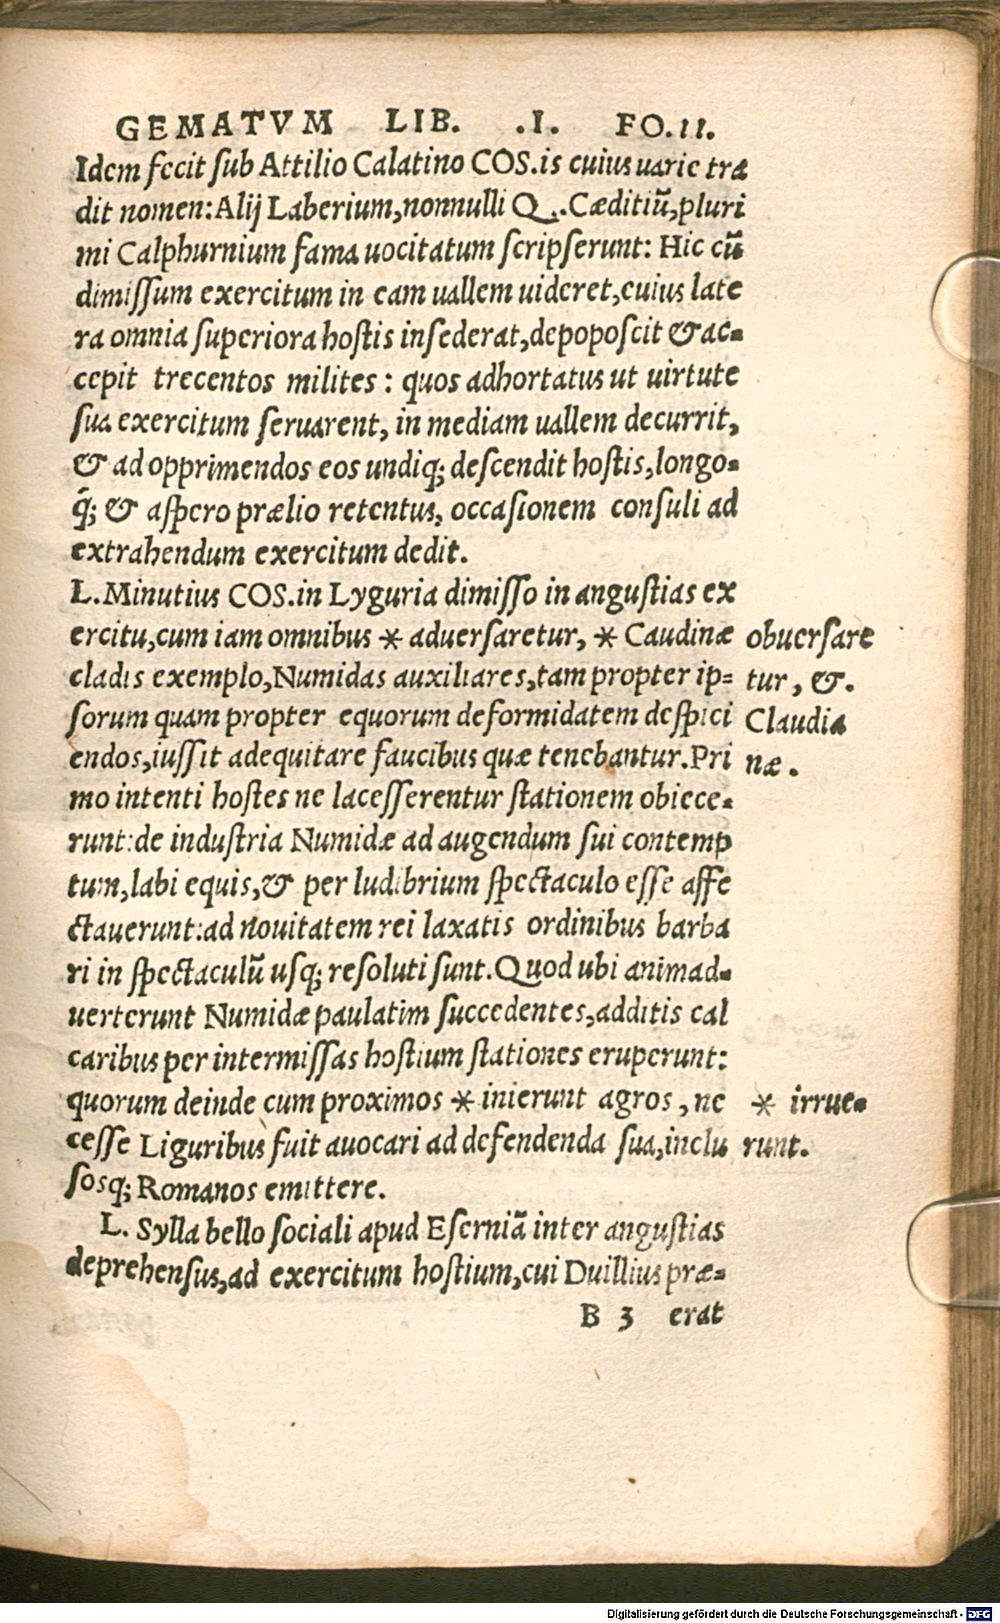 GEMATVM LIB. .I. FO.II.
Idem fecit sub Attilio Calatino COS.is cuius uarie tra
dit nomen:Alij Laberium,nonnulli Q. Cæditiũ,pluri
mi Calphurnium fama uocitatum scripserunt: Hic cũ
dimissum exercitum in eam uallem uideret,cuius late
ra omnia superiora hostis insederat,depoposcit & ac-
cepit trecentos milites : quos adhortatus ut uirtute
sua exercitum seruarent, in mediam uallem decurrit,
& ad opprimendos eos undiq; descendit hostis,longo-
q́; & aspero prælio retentus, occasionem consuli ad
extrahendum exercitum dedit.
L.Minutius COS.in Lyguria dimisso in angustias ex
ercitu,cum iam omnibus * aduersaretur, * Caudinæ
cladis exemplo,Numidas auxiliares,tam propter ip-
sorum quam propter equorum deformidatem despici
endos,iussit adequitare faucibus quæ tenebantur.Pri
mo intenti hostes ne lacesserentur stationem obiece-
runt:de industria Numidæ ad augendum sui contemp
tum,labi equis,& per ludibrium spectaculo esse affe
ctauerunt:ad nouitatem rei laxatis ordinibus barba
ri in spectaculũ usq; resoluti sunt.Quod ubi animad-
uerterunt Numidæ paulatim succedentes,additis cal
caribus per intermissas hostium stationes eruperunt:
quorum deinde cum proximos * inierunt agros ,ne
cesse Liguribus fuit auocari ad defendenda sua,inclu
sosq; Romanos emittere.
L. Sylla bello sociali apud Eserniã inter angustias
deprehensus,ad exercitum hostium,cui Duillius præ-
B 3 erat
obuersare
tur, &.
Claudia
næ .
* irrue-
runt.
Digitalisierung gefördert durch die Deutsche Forschungsgemeinschaft - DFG